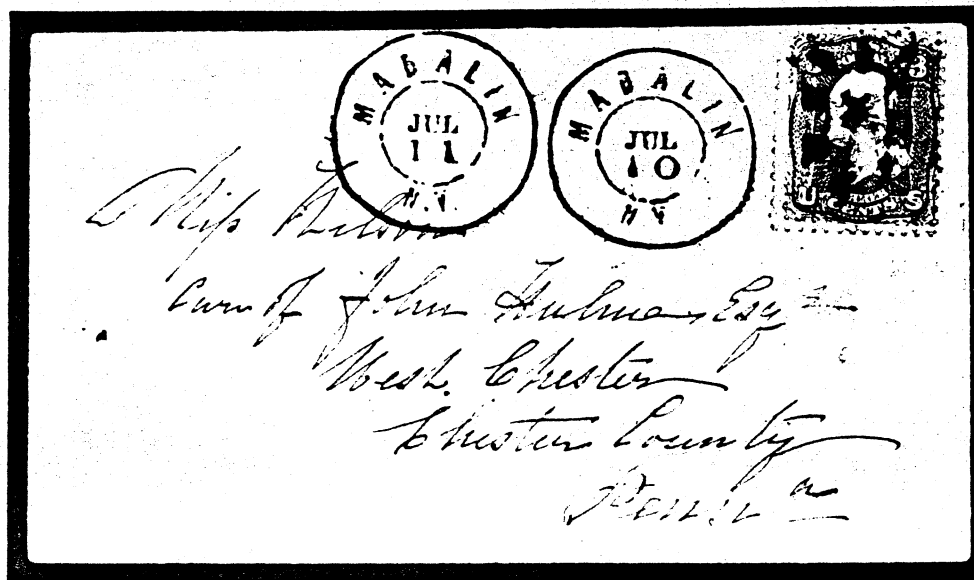 MADALIN
JUL
11
N.Y.
MADALIN
JUL
10
N.Y.
U S
CENTS
Miss Wilson
Care of John Hulme Esqr
West. Chester
Chester County
Penn a